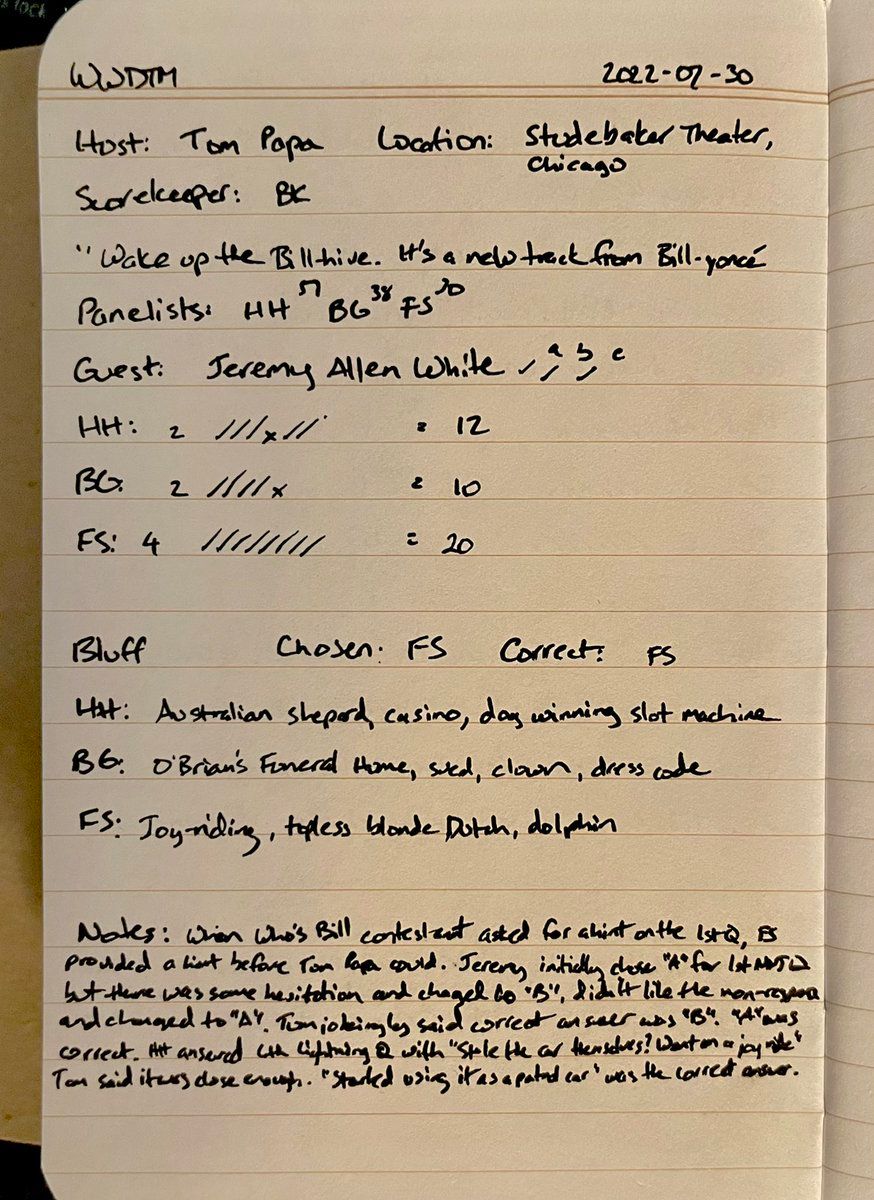 WWDTM 2022-07-30
Host: Tom Papa Location: Studebaker Theater,
Chicago
Scorekeeper: BK
"Wake up the Billhive. It's a new track from Bill-yoncé
Panelists: HH 57 BG 38 FS 20
Guest: Jeremy Allen White ✓ a ✓ b ✓ c
HH: 2 ///x// = 12
BG: 2 ////x = 10
FS: 4 //////// = 20
Bluff Chosen: FS Correct: FS
HH: Australian sheperd, casino, dog winning slot machine
BG: O'Brian's Funeral Home, clown, dress code
FS: Joy-riding, topless blonde Dutch, dolphin
Notes: When Who's Bill contestant asked for a hint on the 1st Q, FS
provided a hint before Tom Papa could. Jeremy initially chose "A" for 1st
but there was some hesitation and changed to "B", didn't like the non-response
and changed to "A". Tom jokingly said correct answer was "B". "A" was
correct. HH answered 4th Lightning Q with "Stole the car themselves? Went on a joy ride"
Tom said it was close enough. "Started using it as a patrol car" was the correct answer.